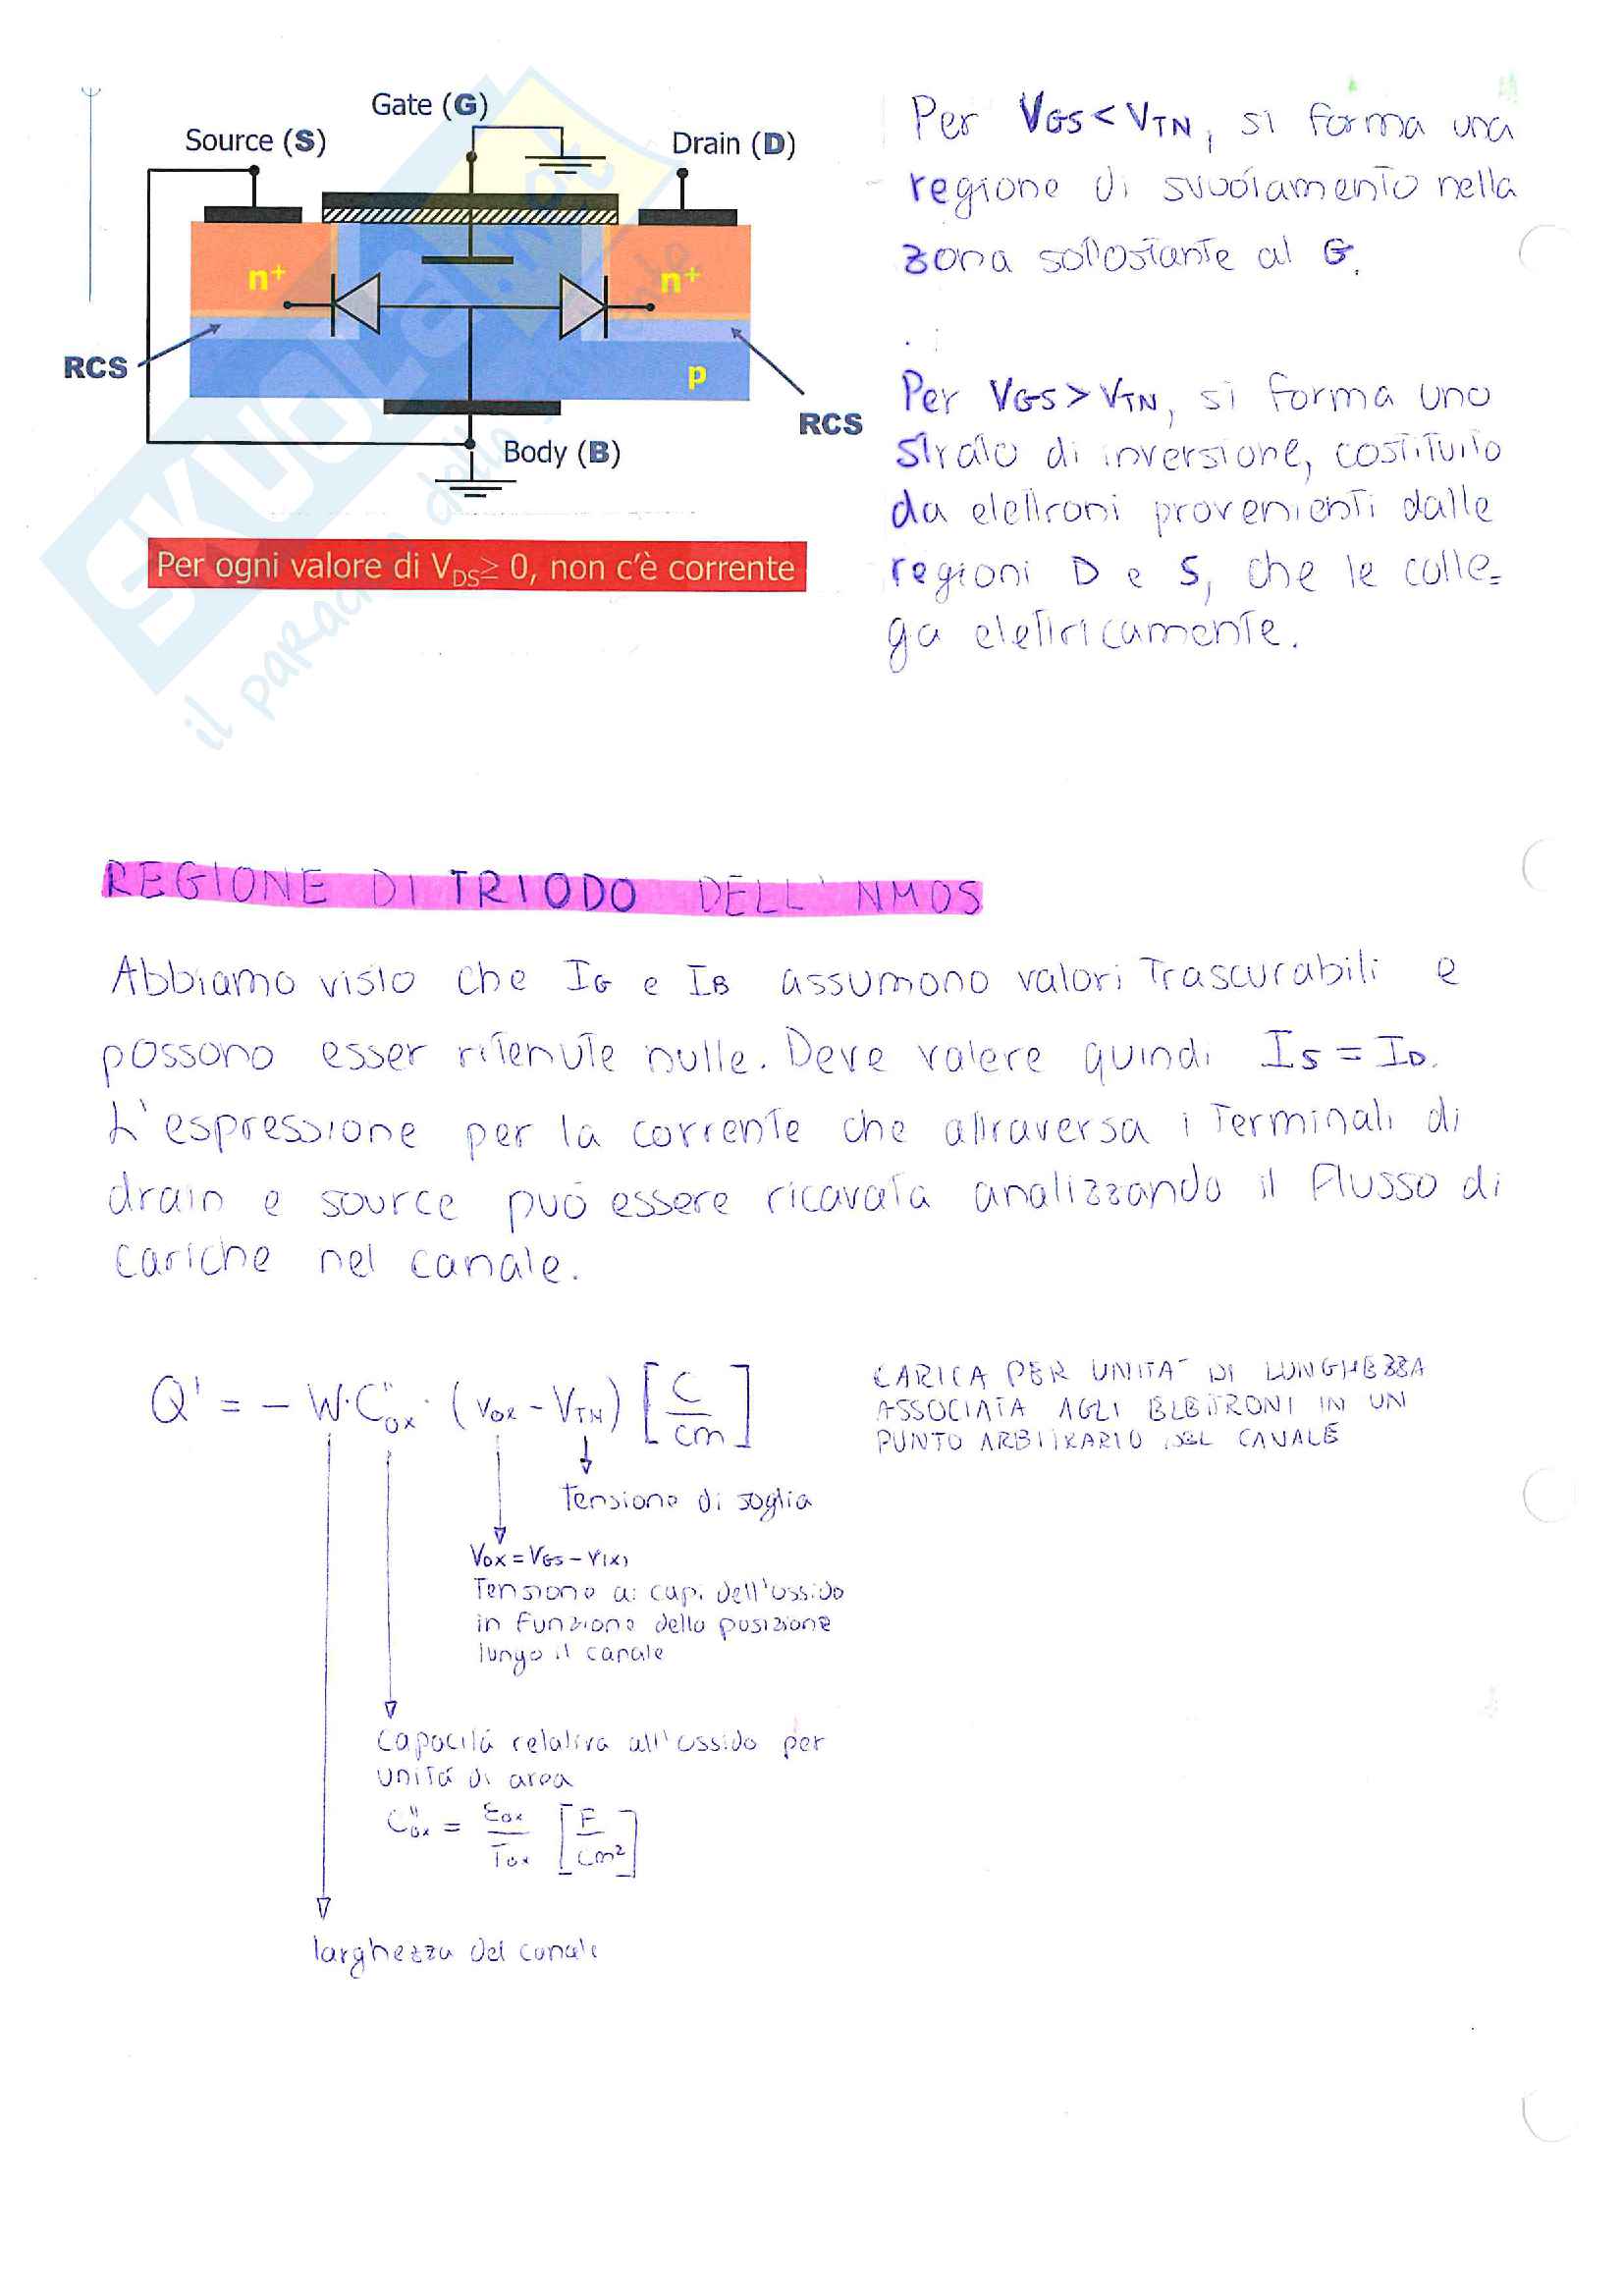 Gate (G)
Source (S)
Drain (D)
n+
n+
RCS
p
RCS
Body (B)
Per ogni valore di VDS≥ 0, non c'è corrente
SKUOLA.net
il paradiso dello studente
Per VGS < VTN, si forma una
regione di svuotamento nella
zona sottostante al G.
Per VGS > VTN, si forma uno
strato di inversione, costituito
da elettroni provenienti dalle
regioni D e S, che le colle=
ga elettricamente.
REGIONE DI TRIODO DELL'NMOS
Abbiamo visto che IG e IB assumono valori trascurabili e
possono esser ritenute nulle. Deve valere quindi IS = ID.
L'espressione per la corrente che attraversa i terminali di
drain e source può essere ricavata analizzando il flusso di
cariche nel canale.
Q' = - W·C''ox·(vox - VTN) [C/cm]
CARICA PER UNITA' DI LUNGHEZZA
ASSOCIATA AGLI ELETTRONI IN UN
PUNTO ARBITRARIO DEL CANALE
tensione di soglia
Vox = VGS - V(x)
Tensione ai capi dell'ossido
in funzione della posizione
lungo il canale
capacità relativa all'ossido per
unità di area
C''ox = εox/Tox [F/cm²]
larghezza del canale